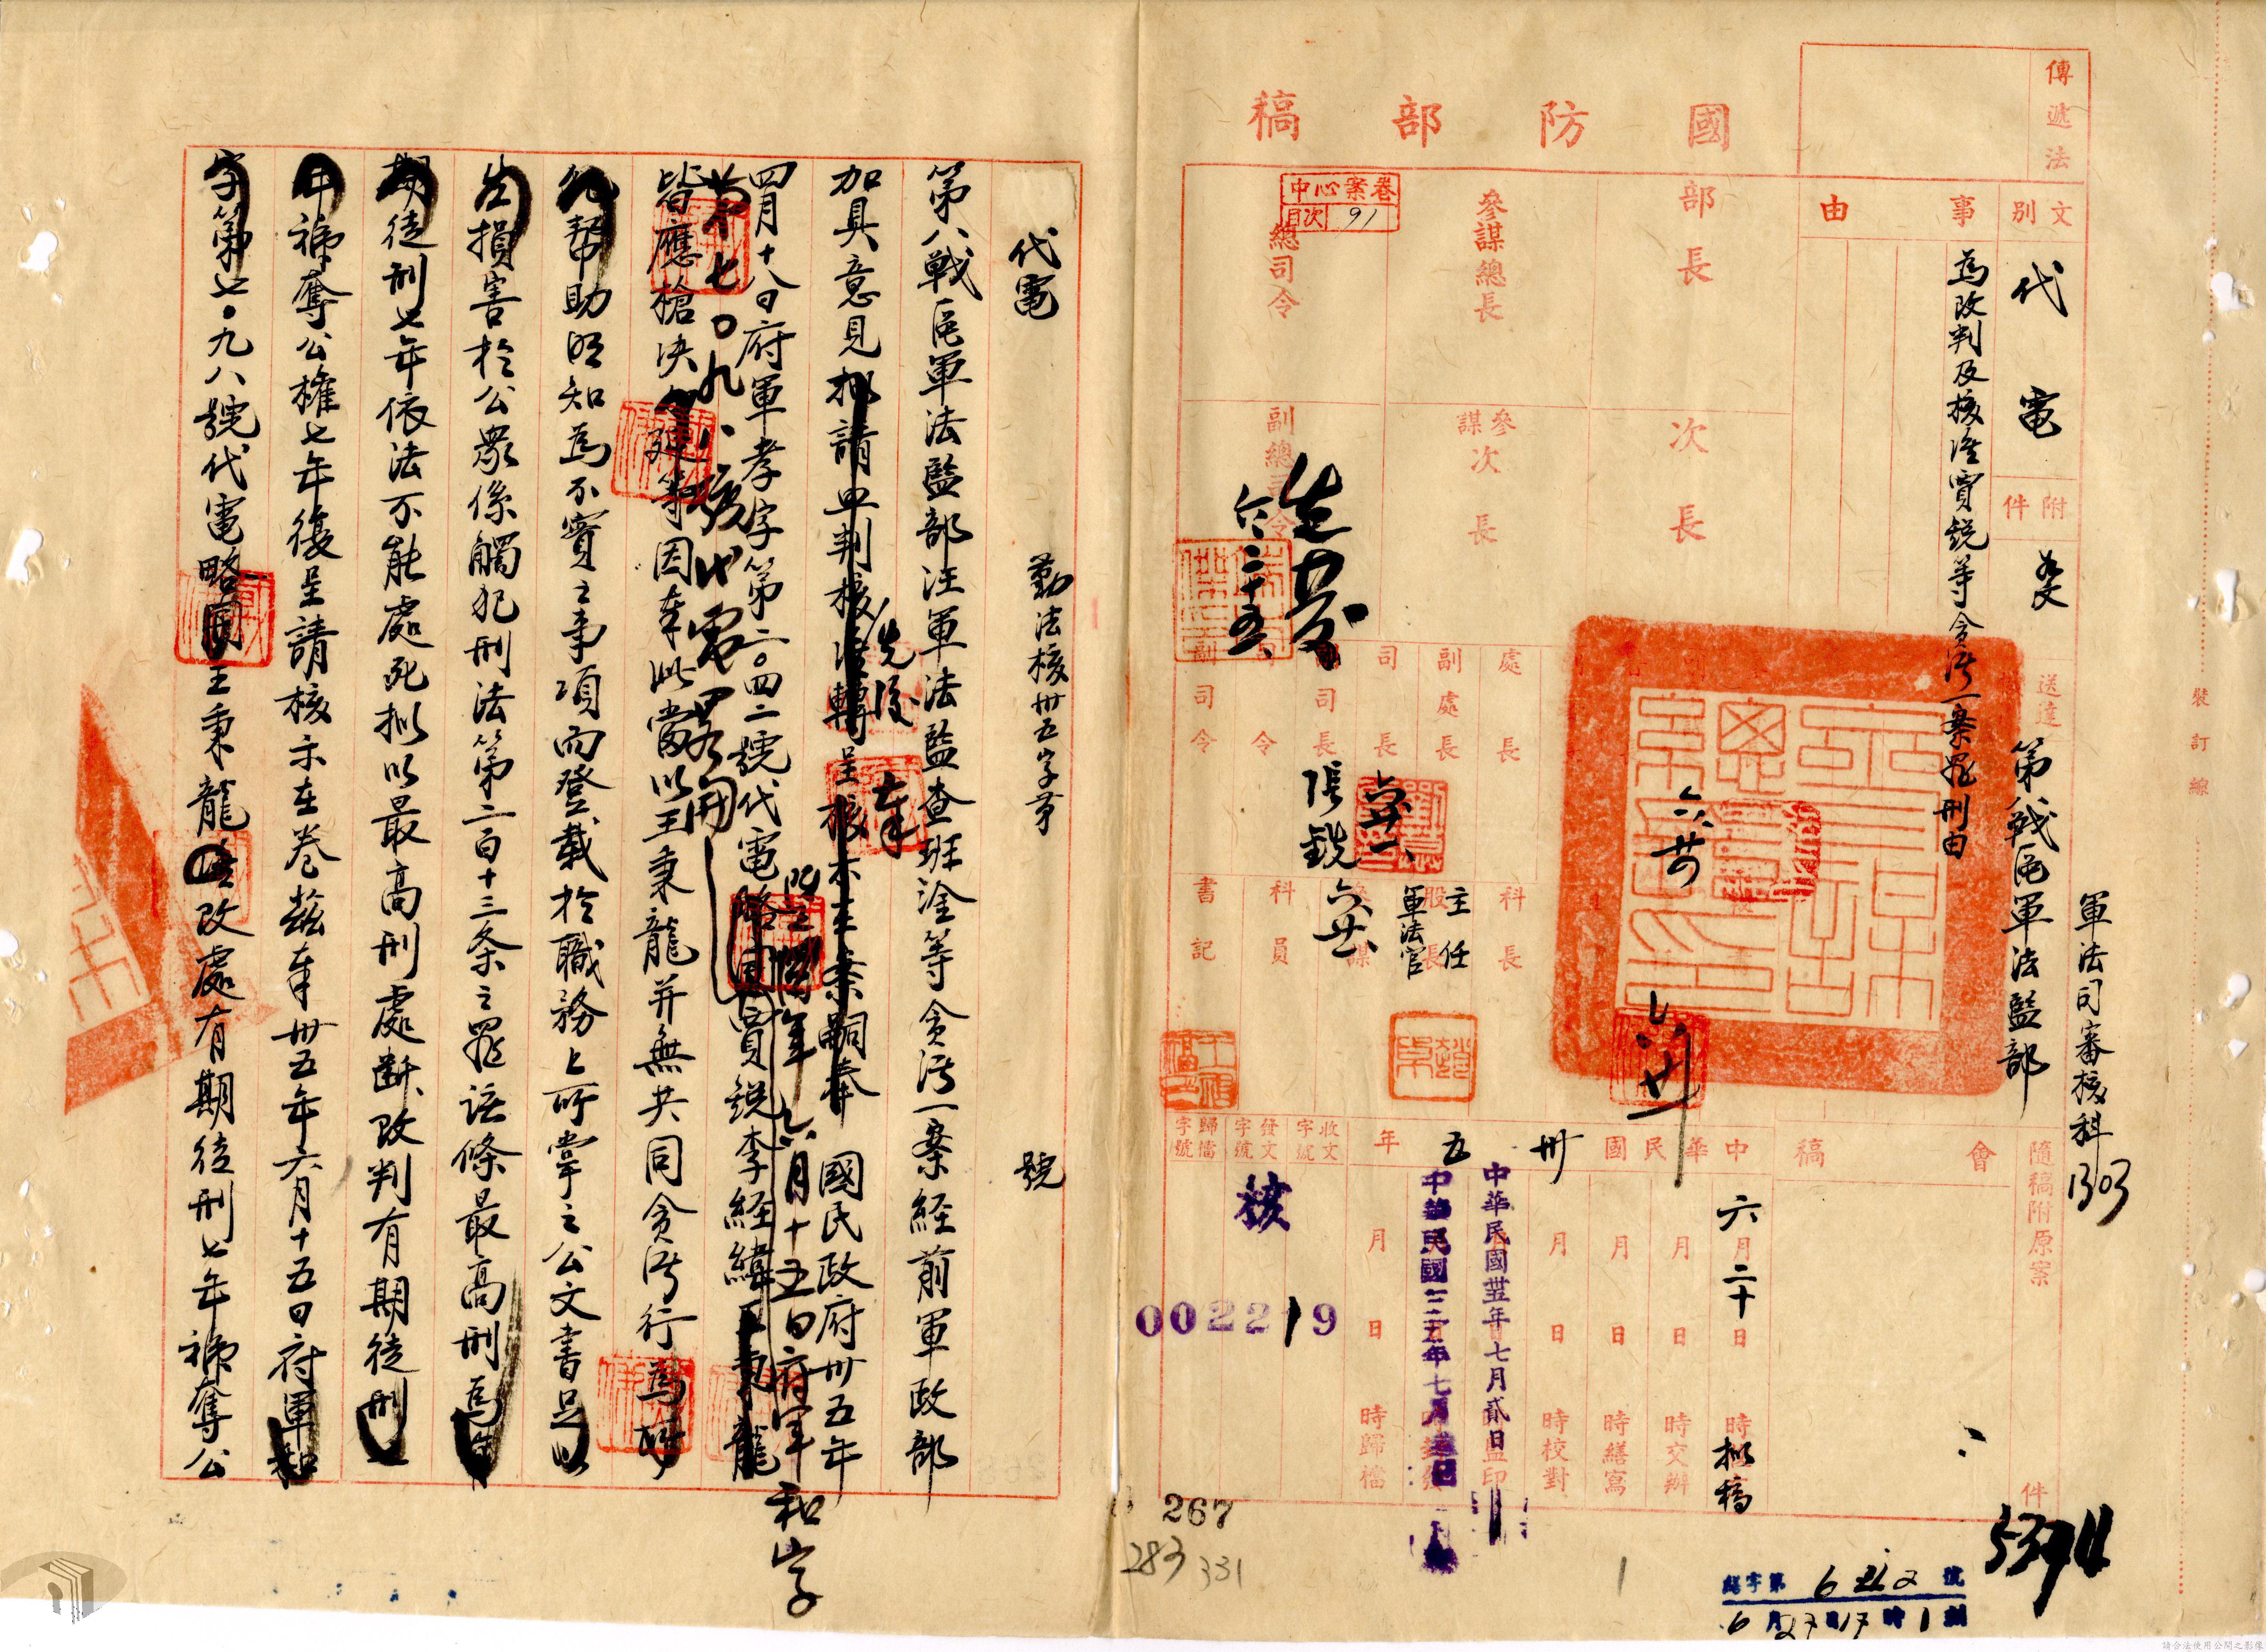 國防部稿
傳遞法
文別
代電
附件
送達
第戰區軍法監部
軍法司審核科
1303
隨稿附原案
件
事由
為改判及核准賈銳等貪污一案罪刑由
部長
次長
參謀總長
參謀次長
總司令
副總司令
中心案卷
目次 91
六、二十五
處長
副處長
司長
副司長
司令
副司令
張銳
六廿
科長
股長
主任
軍法官
科員
書記
會稿
中華民國卅五年
六月二十日時擬稿
月日時交辦
月日時繕寫
月日時校對
中華民國卅五年七月貳日
監印
月日時歸檔
收文字號
發文字號
歸檔字號
核
002219
267
283
331
5394
總字第 6212 號
6月27日17時1刻
裝訂線
代電
勤法核卅五字第
號
第八戰區軍法監部汪軍法監查班淦等貪污一案経前軍政部
加具意見擬請
先後
轉呈核示在案嗣奉
國民政府卅五年
四月十八日府軍孝字第二〇四二號代電
略開
賈銳李経緯王秉龍
六月十五日府軍和字
第七〇九八號代電畧開
皆應槍決
等因奉此當以王秉龍并無共同貪污行為
幫助明知為不實之事項而登載於職務上所掌之公文書足以
生損害於公眾係觸犯刑法第二百十三条之罪該條最高刑為有
期徒刑七年依法不能處死拟以最高刑處断改判有期徒刑七
年褫奪公權七年復呈請核示在卷茲奉卅五年六月十五日府軍和
字第七〇九八號代電略開王秉龍准改處有期徒刑七年褫奪公
請合法使用公開之影像